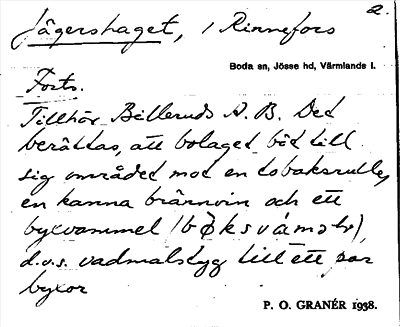 a.
Jägershaget, i Rinnefors
Boda sn, Jösse hd, Värmlands l.
Forts.
Tillhör Billeruds A.B. Det
berättas, att bolaget böt till
sig området mot en tobaksrulle,
en kanna brännvin och ett
byxvammel /bøksvámǝl/,
d.v.s. vadmalstyg till ett par
byxor
P. O. GRANÉR 1938.